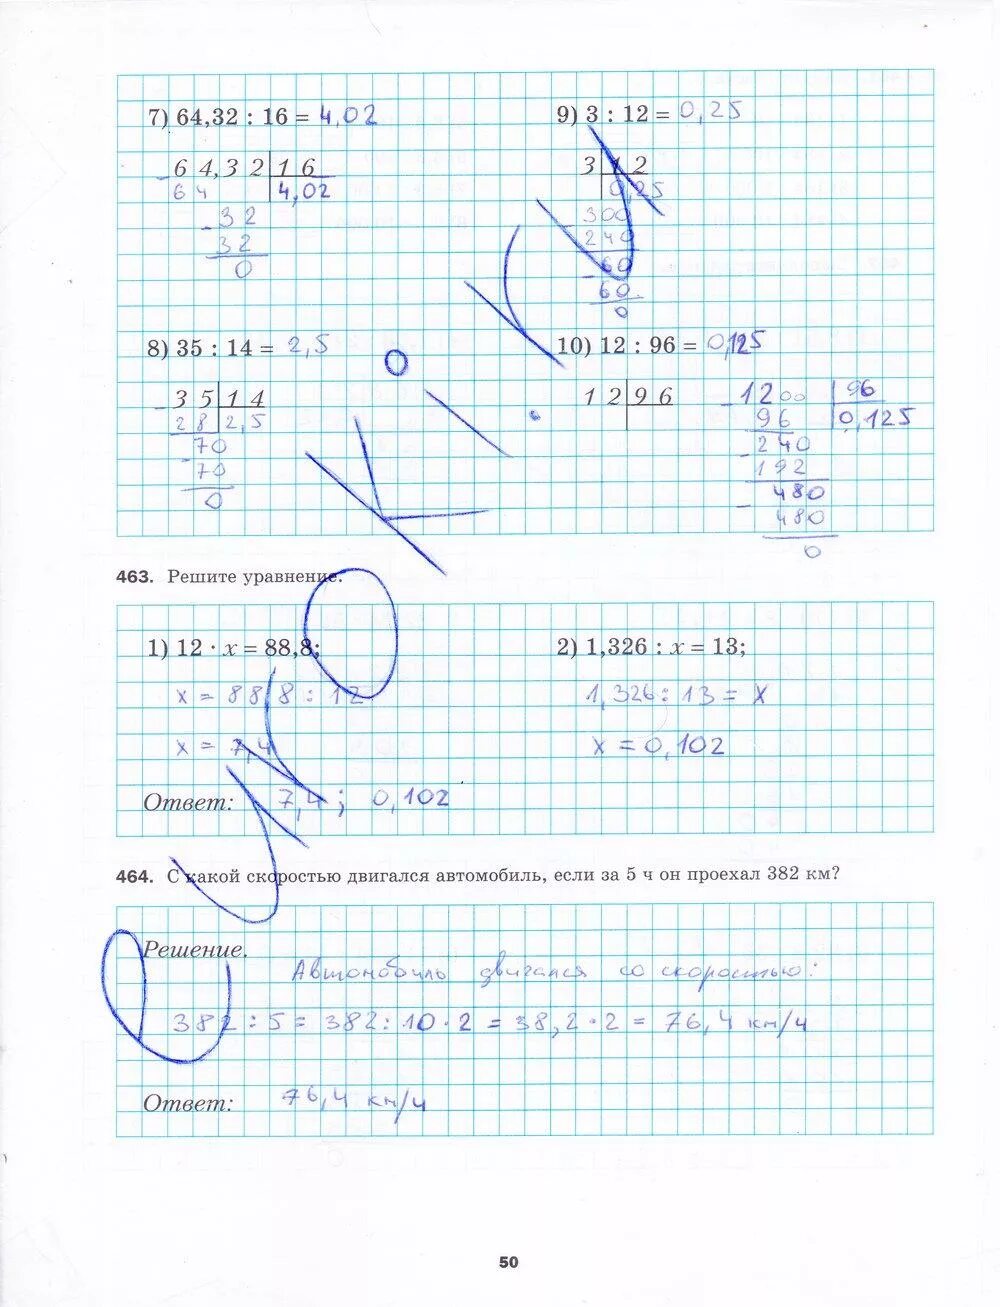 7) 64,32 : 16 = 4,02
64,32 16
64 4,02
32
32
0
8) 35 : 14 = 2,5
35 14
28 2,5
70
70
0
9) 3 : 12 = 0,25
3 12
0,25
300
240
60
60
0
10) 12 : 96 = 0,125
12 96
1200 96
96 0,125
240
192
480
480
0
463. Решите уравнение.
1) 12 · x = 88,8;
x = 88,8 : 12
x = 7,4
2) 1,326 : x = 13;
1,326 : 13 = x
x = 0,102
Ответ: 7,4 ; 0,102
464. С какой скоростью двигался автомобиль, если за 5 ч он проехал 382 км?
Решение.
Автомобиль двигался со скоростью:
382 : 5 = 382 : 10 · 2 = 38,2 · 2 = 76,4 км/ч
Ответ: 76,4 км/ч
50